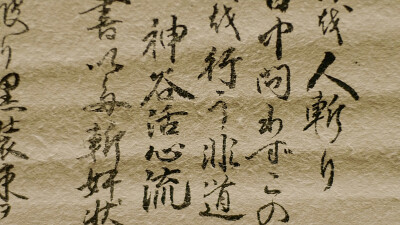 人斬り
中問わずこの
行う非道
神谷活心流
書以毎斬奸状
り黒装束